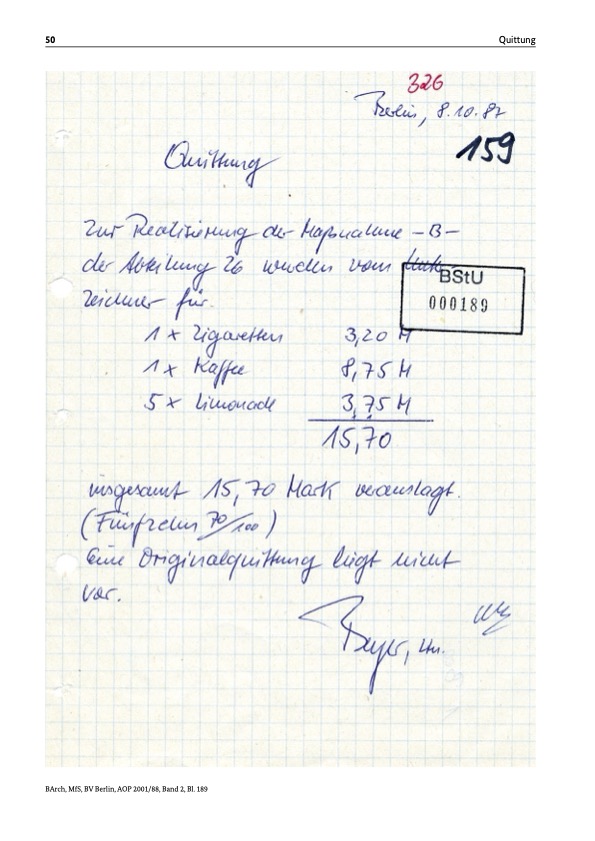 50 Quittung
326
Berlin, 8.10.87
159
Quittung
Zur Realisierung der Maßnahme –B–
der Abteilung 26 wurden vom Unter
BStU
000189
zeichner für
1 x Zigaretten 3,20 M
1 x Kaffee 8,75 M
5 x Limonade 3,75 M
15,70
insgesamt 15,70 Mark verauslagt.
(Fünfzehn 70/100)
Eine Originalquittung liegt nicht
vor.
Beyer, Ltn.
BArch, MfS, BV Berlin, AOP 2001/88, Band 2, Bl. 189